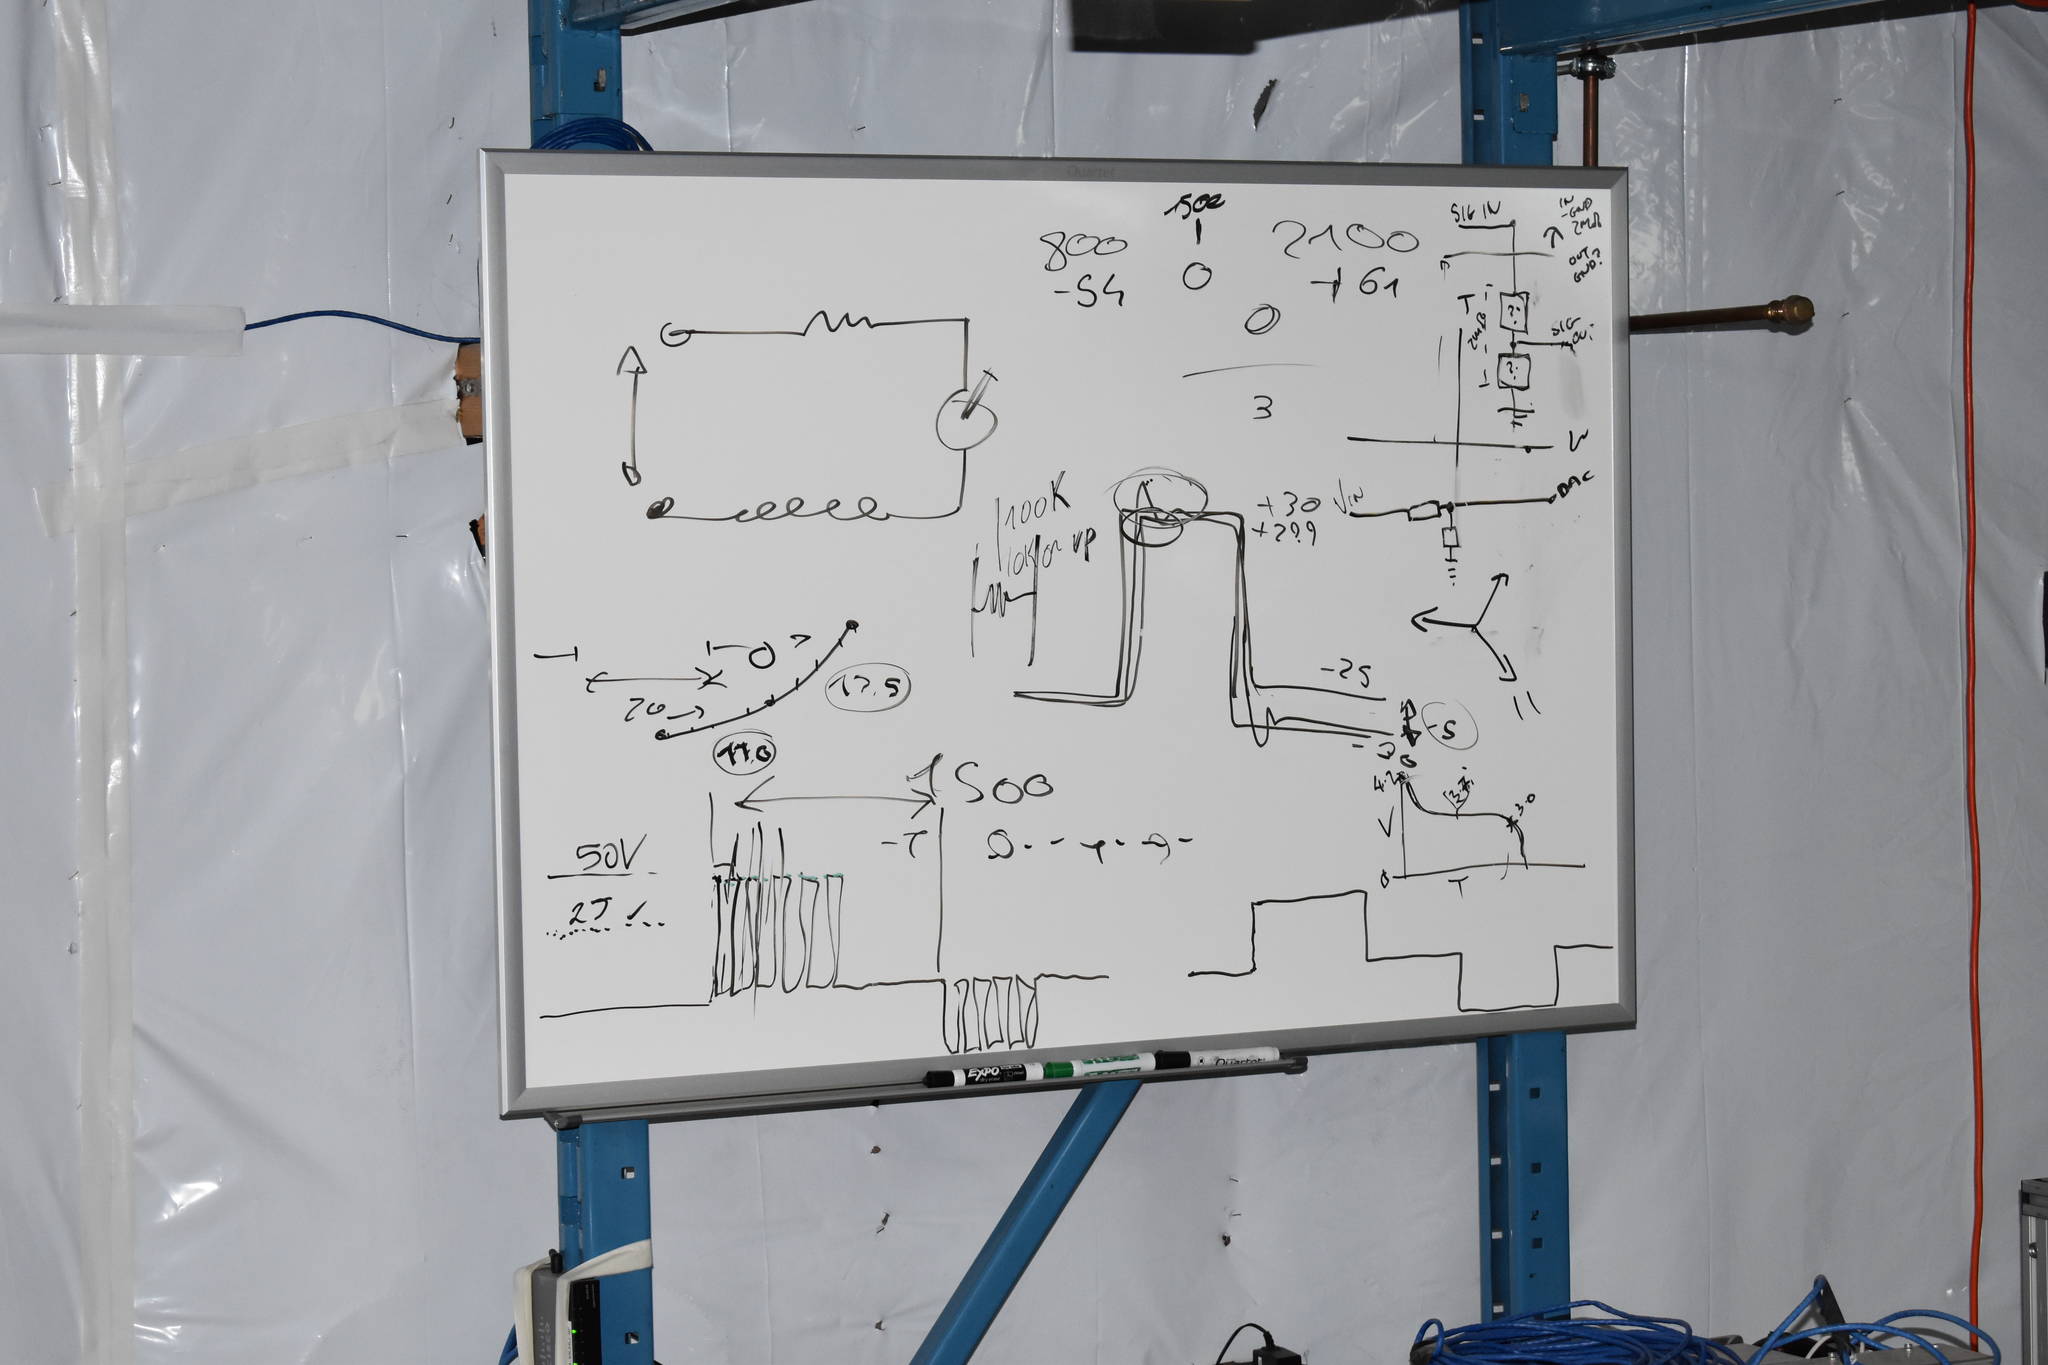 Quartet
1500
800
0
2100
-54
+61
0
3
SIG IN
IN
-GND
2MΩ
OUT
GND?
T
??
2MΩ
SIG
??
100K
10K OR UP
+30
+29.9
VIN
DAC
-25
-5
-30
20
17.5
17.0
1500
-T
50V
4.2
3.7
3.0
V
0
T
EXPO
Quartet